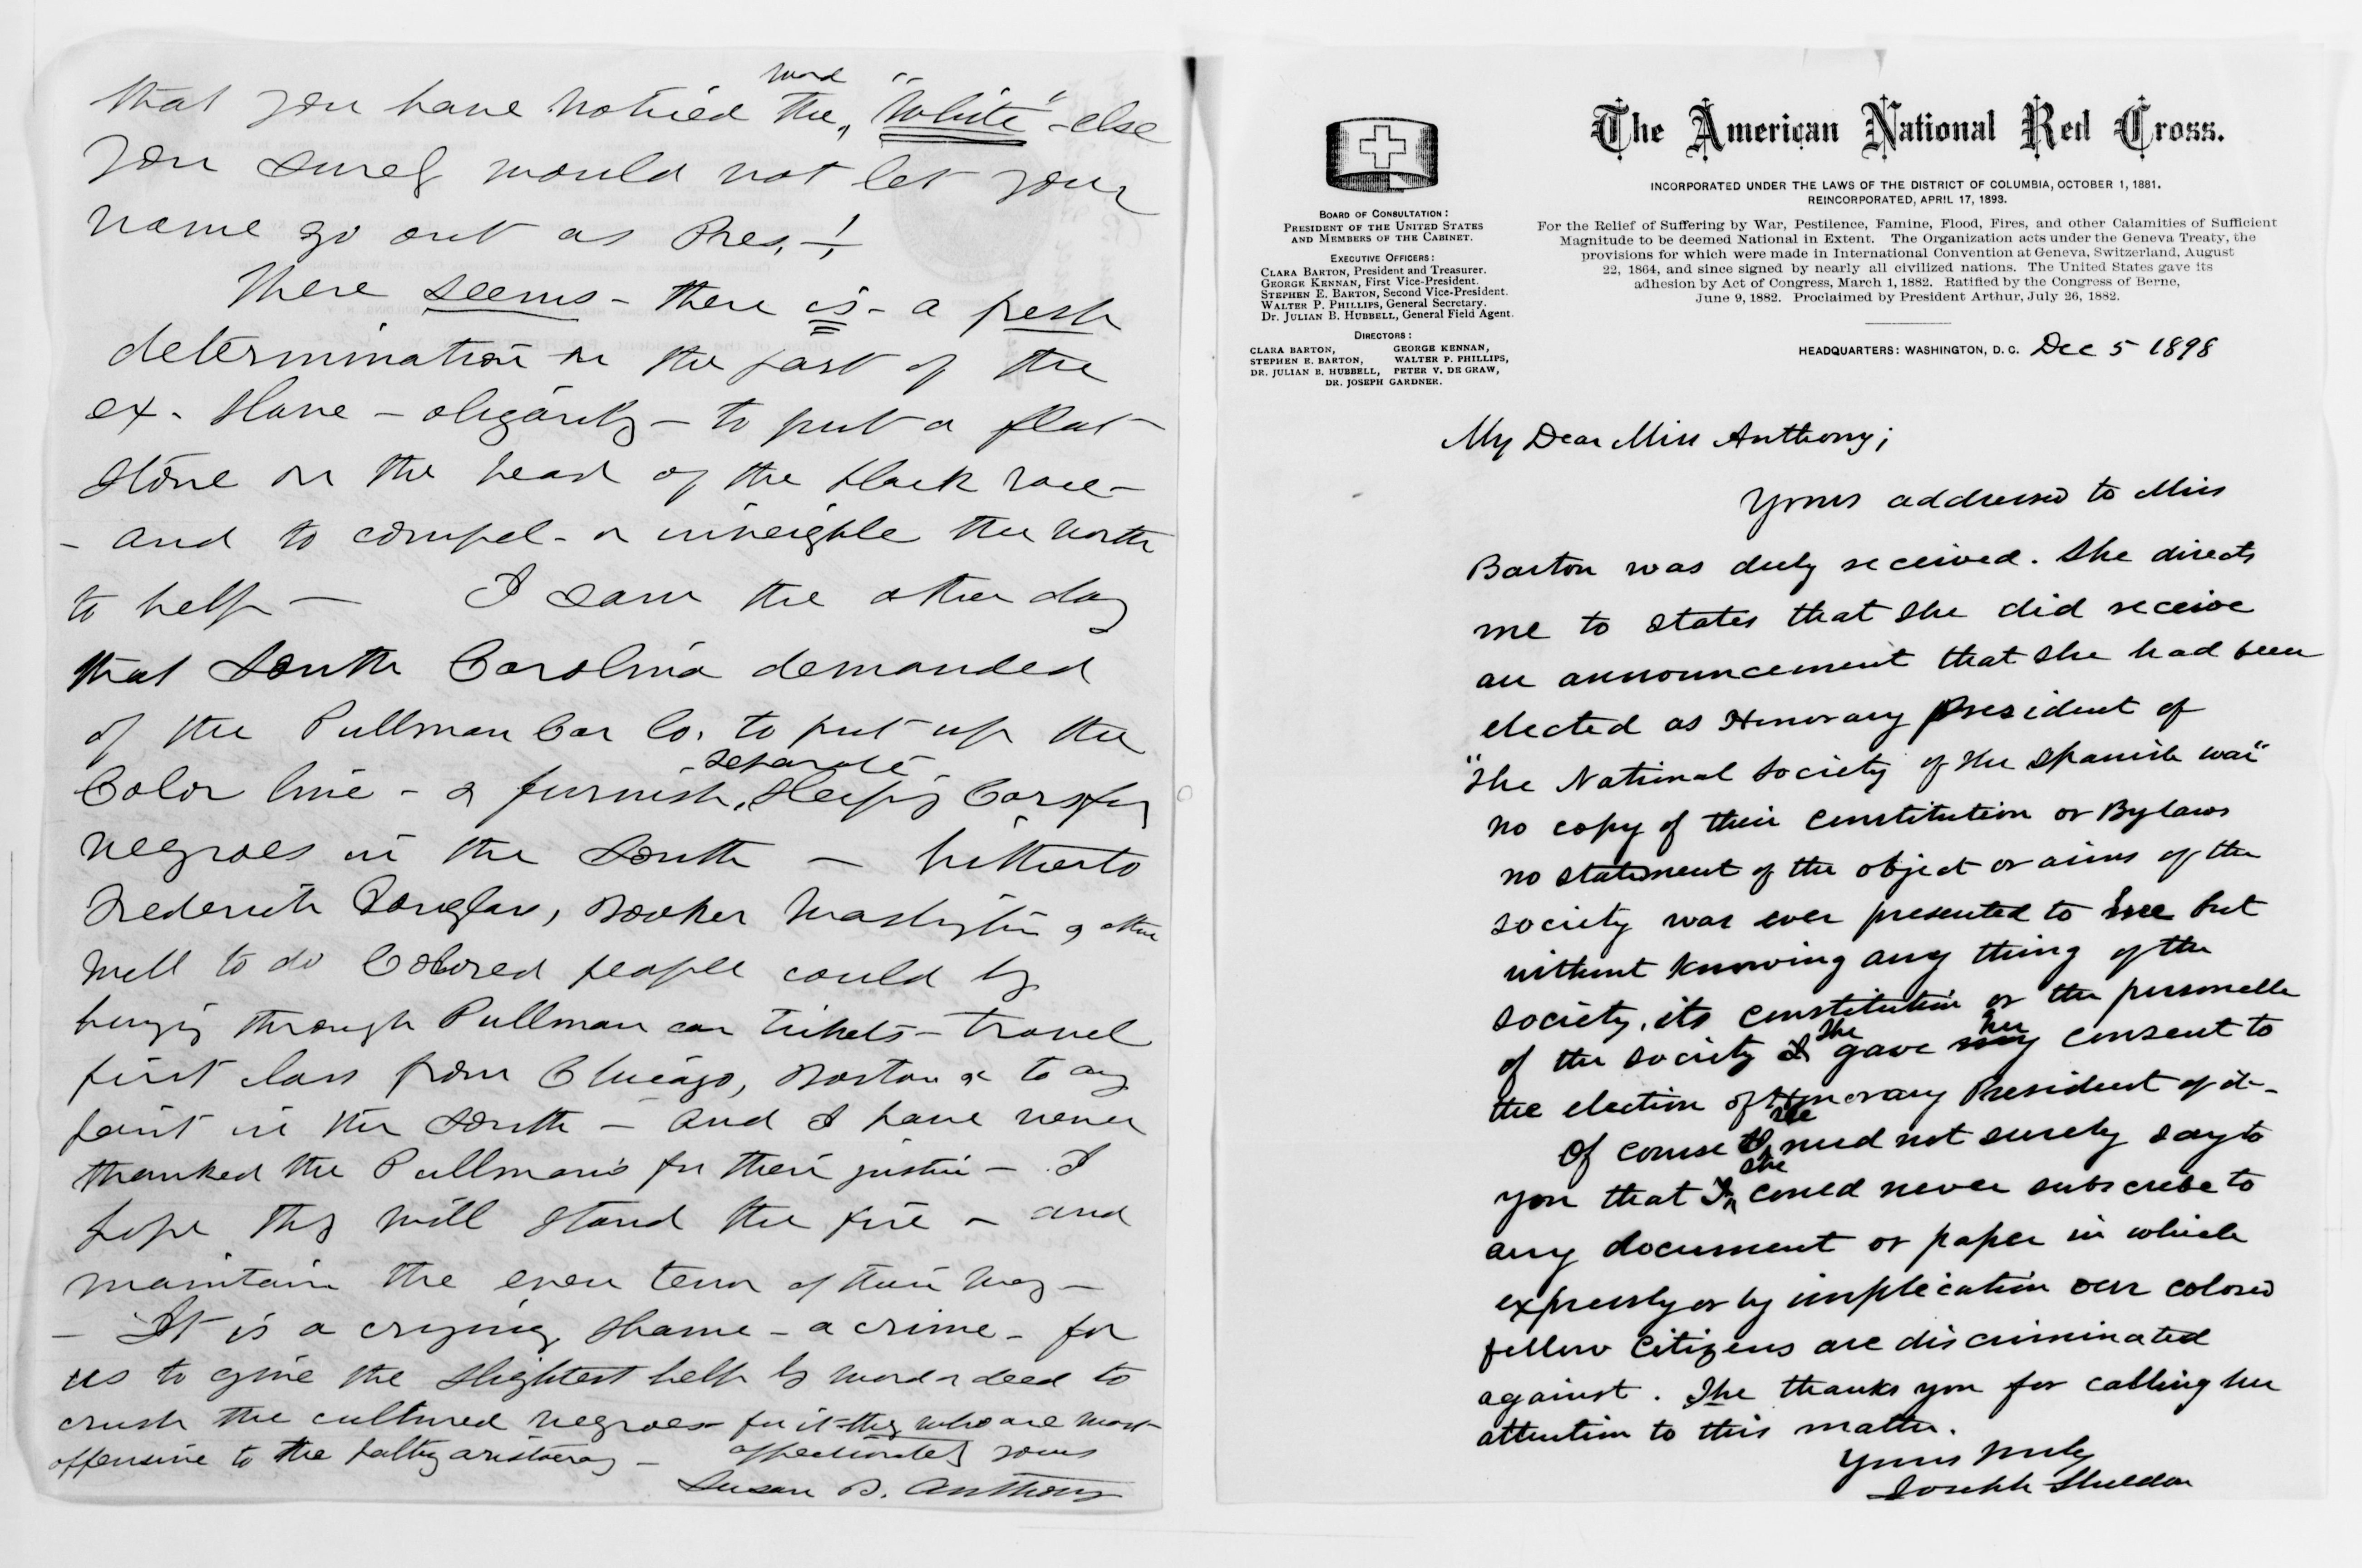 word
that you have noticed the "White" - else
you surely would not let your
name go out as Pres. - !
There seems - there is - a fresh
determination on the part of the
ex-slave - oligarchy - to put a flat
stone on the head of the black race -
- and to compel - or inveighle the north
to help - I saw the other day
that South Carolina demanded
of the Pullman Car Co. to put up the
separate
Color line - & furnish Sleeping Cars for
negroes in the South - hitherto
Frederick Douglass, Booker Washington & other
well to do Colored people could by
buying through Pullman car tickets - travel
first class from Chicago, Boston &c to any
point in the South - and I have never
thanked the Pullman's for their justice - I
hope they will stand the fire - and
maintain the even tenor of their way -
- It is a crying shame - a crime - for
us to give the slightest help by word or deed to
crush the cultured negroes for it is they who are most
offensive to the paltry aristocracy - affectionately yours
Susan B. Anthony
The American National Red Cross.
INCORPORATED UNDER THE LAWS OF THE DISTRICT OF COLUMBIA, OCTOBER 1, 1881.
REINCORPORATED, APRIL 17, 1893.
For the Relief of Suffering by War, Pestilence, Famine, Flood, Fires, and other Calamities of Sufficient
Magnitude to be deemed National in Extent. The Organization acts under the Geneva Treaty, the
provisions for which were made in International Convention at Geneva, Switzerland, August
22, 1864, and since signed by nearly all civilized nations. The United States gave its
adhesion by Act of Congress, March 1, 1882. Ratified by the Congress of Berne,
June 9, 1882. Proclaimed by President Arthur, July 26, 1882.
BOARD OF CONSULTATION:
PRESIDENT OF THE UNITED STATES
AND MEMBERS OF THE CABINET.
EXECUTIVE OFFICERS:
CLARA BARTON, President and Treasurer.
GEORGE KENNAN, First Vice-President.
STEPHEN E. BARTON, Second Vice-President.
WALTER P. PHILLIPS, General Secretary.
DR. JULIAN B. HUBBELL, General Field Agent.
DIRECTORS:
CLARA BARTON, GEORGE KENNAN,
STEPHEN E. BARTON, WALTER P. PHILLIPS,
DR. JULIAN B. HUBBELL, PETER V. DE GRAW,
DR. JOSEPH GARDNER.
HEADQUARTERS: WASHINGTON, D. C. Dec 5 1898
My Dear Miss Anthony;
Yours addressed to Miss
Barton was duly received. She directs
me to states that she did receive
an announcement that she had been
elected as Honorary President of
"The National Society of the Spanish war"
no copy of their constitution or Bylaws
no statement of the object or aims of the
society was ever presented to but
without knowing any thing of the
society, its constitution or the personelle
she her
of the society I gave my consent to
the election of Honorary President of it -
she
Of course I need not surely say to
she
you that I could never subscribe to
any document or paper in which
expressly or by implication our colored
fellow citizens are discriminated
against. She thanks you for calling her
attention to this matter.
Yours truly
Joseph Sheldon